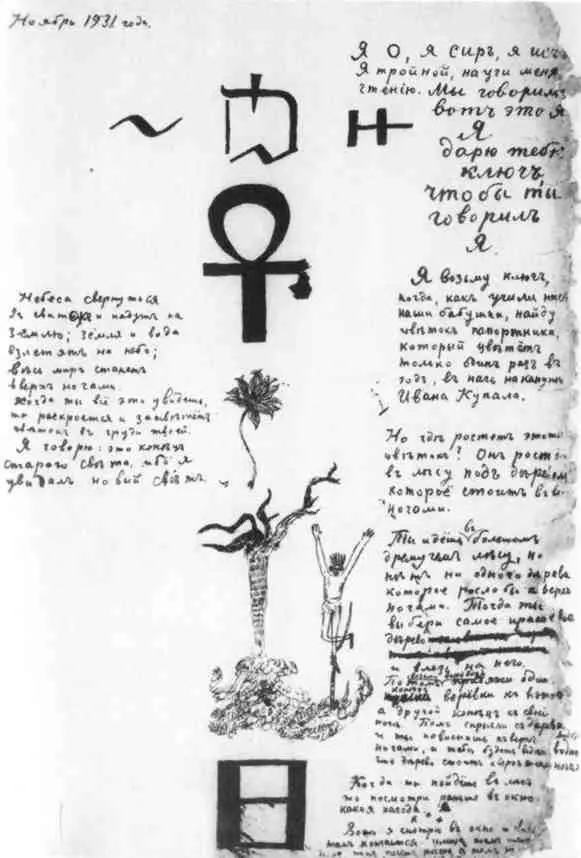 Ноябрь 1931 года.
Я О, я сиръ, я исъ
Я тройной, научи меня
чтенію. Мы говоримъ
вотъ это я
Я
дарю тебѣ
ключъ
чтобы ты
говорилъ
Я.
Я возьму ключъ,
когда, какъ учили насъ
наши бабушки, найду
цвѣтокъ папортника,
который цвѣтётъ
только одинъ разъ въ
годъ, въ ночь накануне
Ивана Купала.
Небеса свернутся
въ свитокъ и падутъ на
Землю; земля и вода
взлетятъ на небо;
весь миръ станетъ
вверхъ ногами.
Когда ты всё это увидишь,
то раскроется и зацвѣтетъ
цвѣтокъ въ груди твоей.
Я говорю: это конецъ
старого свѣта, ибо я
увидалъ новый свѣтъ.
Но гдѣ ростетъ этотъ
цвѣтокъ? Онъ росте
въ лѣсу подъ деревом
которое стоитъ вв
ногами.
Ты идёшь въ большомъ
дремучемъ лѣсу, но
нѣтъ ни одного дерева
которое росло бы вверхъ
ногами. Тогда ты
выбери самое красивое
дерево
и влезь на него.
Потомъ
конецъ веревки къ
а другой конецъ къ своей
ноге. Потомъ съ дерева
и ты повиснешь вверхъ
ногами, и тебѣ будетъ видно
что дерево стоитъ вверхъ ногами
Когда ты пойдёшь въ лесъ
то посмотри раньше въ окно
какая погода.
Вотъ я смотрю въ окно и
тамъ кончается улица